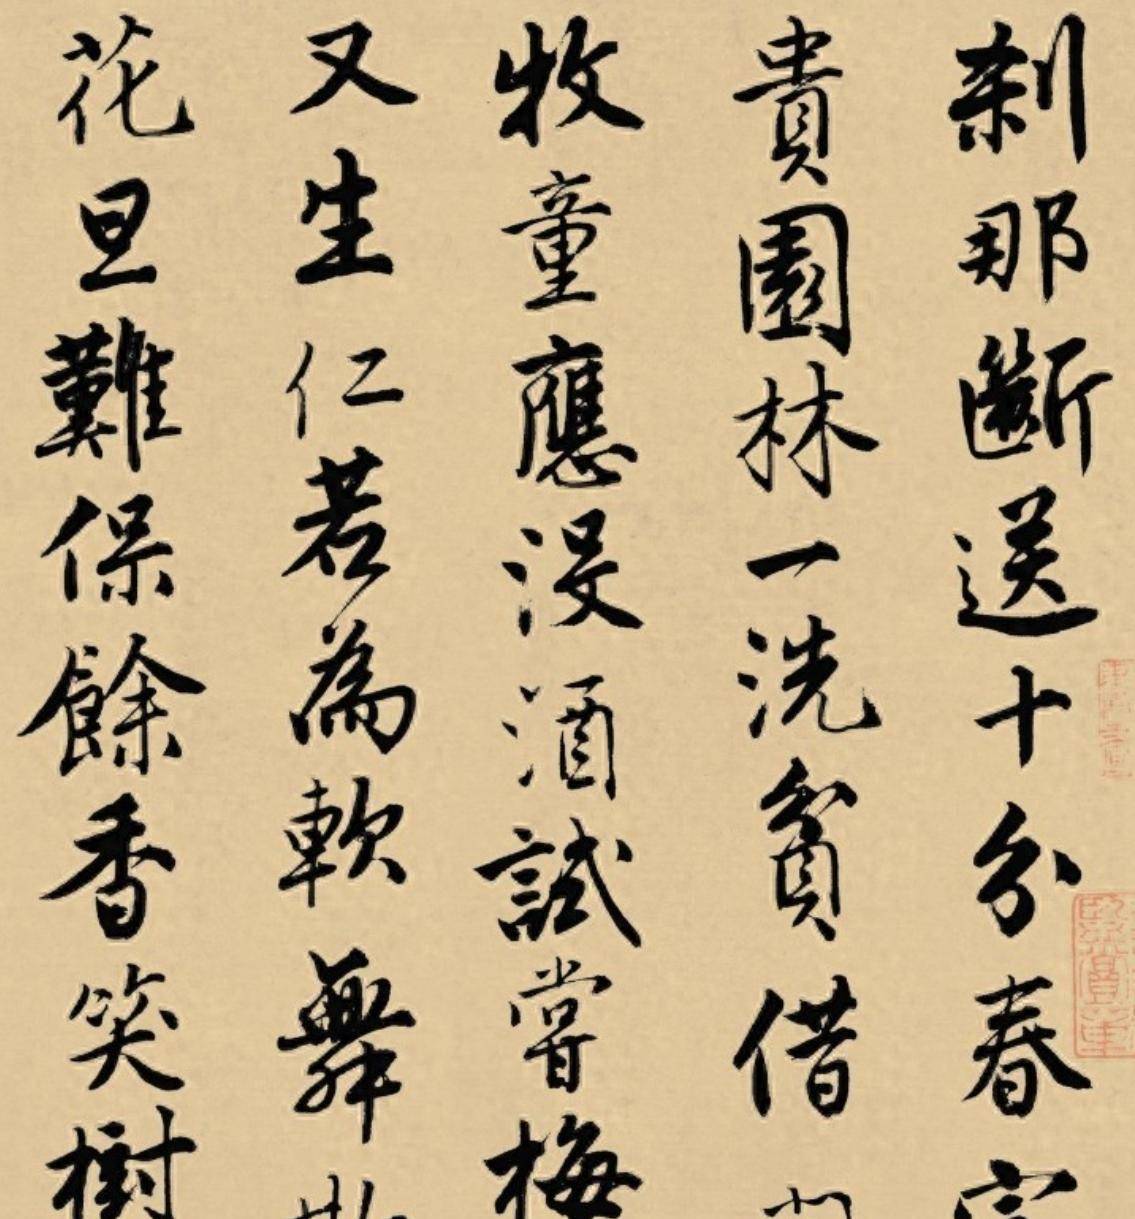 剎那斷送十分春富
貴園林一洗貧借
牧童應沒酒試嘗梅
又生仁若為軟舞
花旦難保餘香笑樹